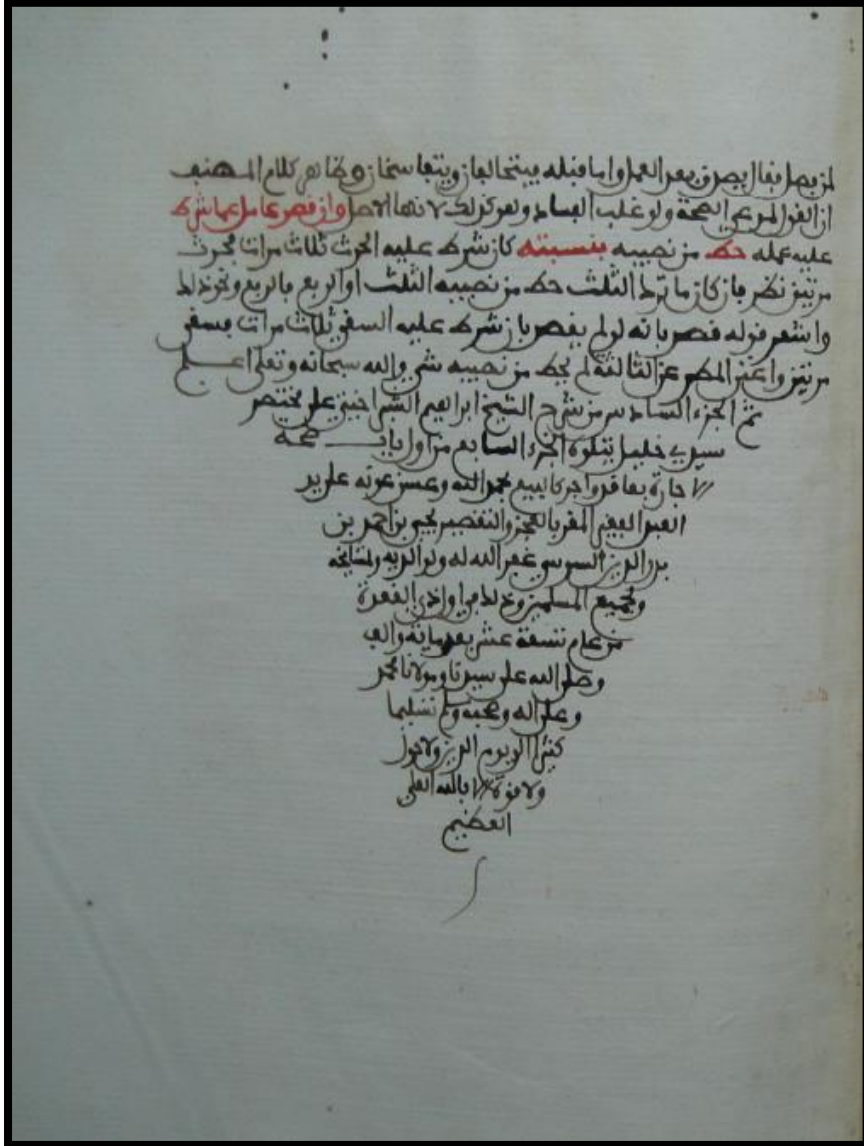 لمن يصل فقال يصدق بعد العمل واما قبله فيتحالفان ويتفاسخان وظاهر كلام المصنف
ان القول لمدعي الصحة ولو غلب الفساد وهو كذلك لانها الاصل وان قصر عامل عما شرط
عليه عمله حط من نصيبه بنسبته كان شرط عليه الحرث ثلاث مرات فحرث
مرتين نظر فان كان ما ترك الثلث حط من نصيبه الثلث او الربع فالربع ونحو ذلك
واشعر قوله قصر بانه لو لم يقصر بان شرط عليه السقي ثلاث مرات فسقى
مرتين واغنى المطر عن الثالثة لم يحط من نصيبه شي والله سبحانه وتعلى اعلم
تم الجزء السادس من شرح الشيخ ابراهيم الشبراخيتي على مختصر
سيدي خليل يتلوه الجزء السابع من اول باب صحة
الاجارة بعاقد واجر كالبيع بحمد الله وحسن عونه على يد
العبد الفقير المقر بالعجز والتقصير يحيى بن احمد بن
بدر الدين السوسي غفر الله له ولوالديه ولمشايخه
ولجميع المسلمين وذلك في اواخر القعدة
من عام تسعة عشر بعد مائة والف
وصلى الله على سيدنا ومولانا محمد
وعلى اله وصحبه وسلم تسليما
كثيرا الى يوم الدين ولا حول
ولا قوة الا بالله العلي
العظيم